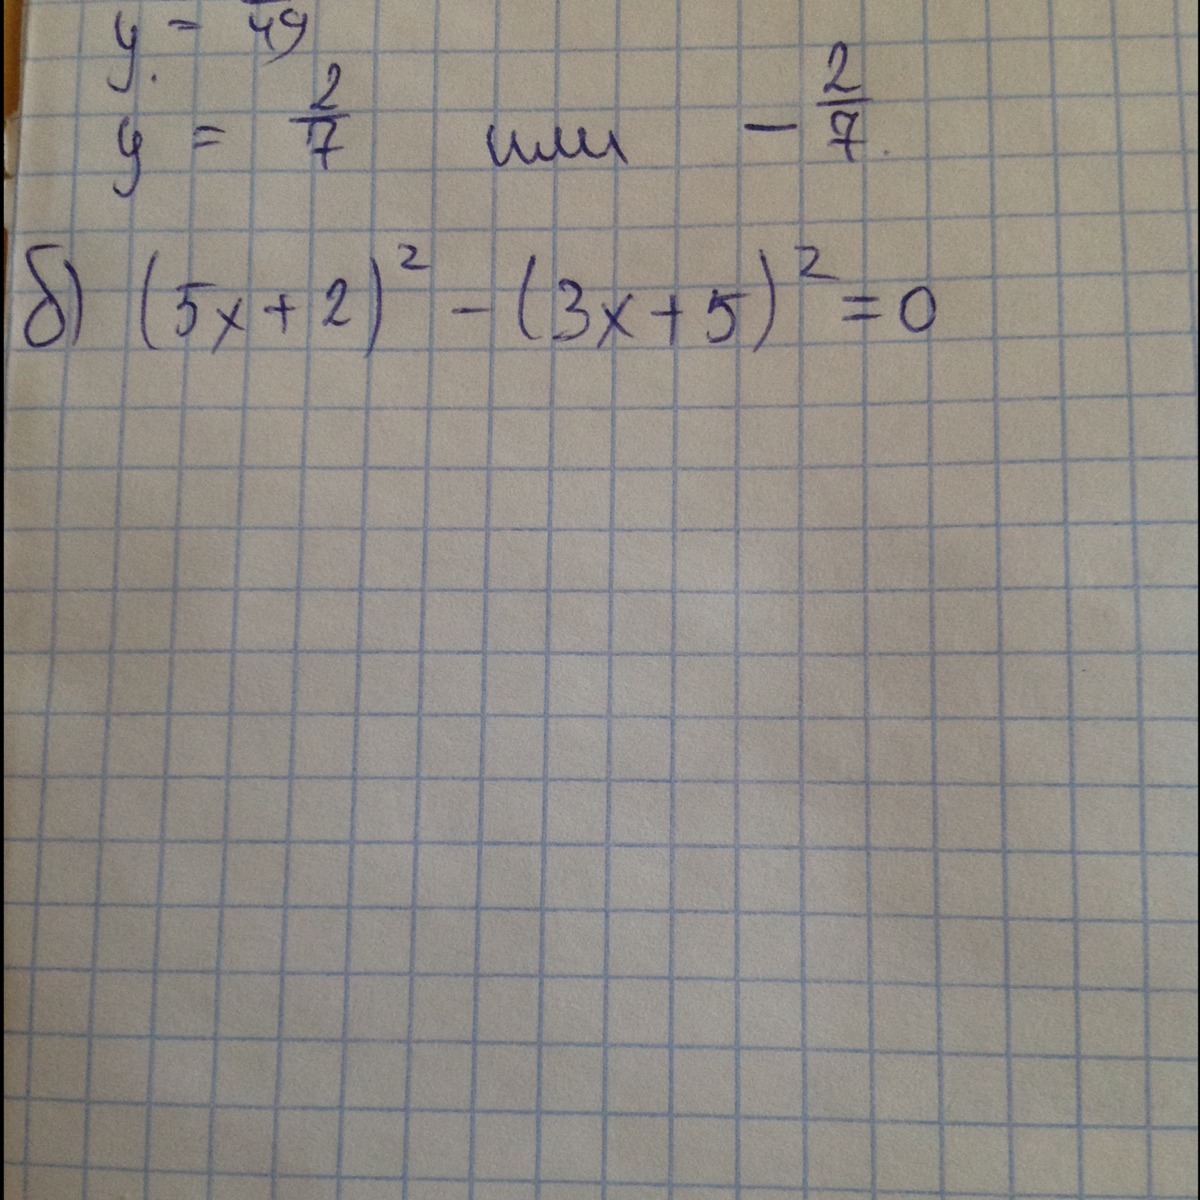 y = /49
y = 2/7 или - 2/7.
б) (5x + 2)² - (3x + 5)² = 0